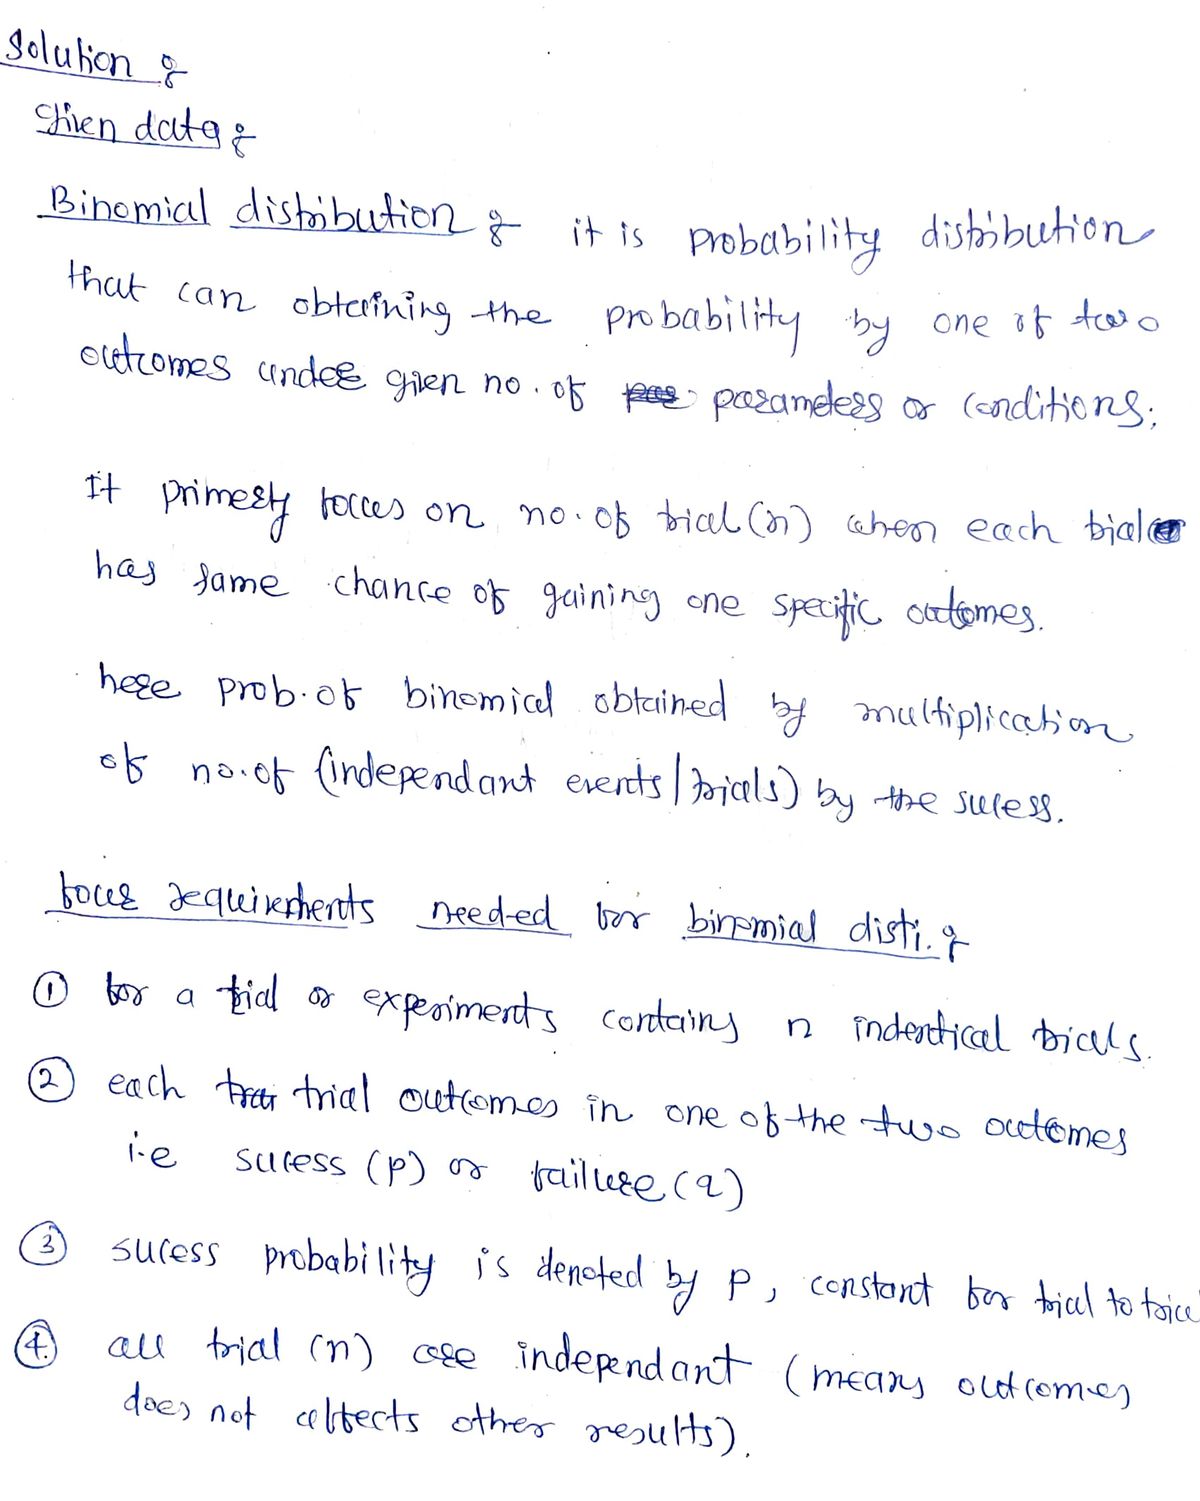 Solution :-
Given data :-
Binomial distribution :- it is probability distribution
that can obtaining the probability by one of two
outcomes under given no. of parameters or conditions.
It primerly focues on no. of trial (n) when each trial
has same chance of gaining one specific outcomes.
here prob. of binomial obtained by multiplication
of no. of (independant events/trials) by the sucess.
four requirements needed for binomial disti. :-
① for a trial or experiments contains n indentical trials.
② each trial outcomes in one of the two outcomes
i.e sucess (p) or failure (q)
③ sucess probability is denoted by p, constant for trial to trial
④ all trial (n) are independant (means outcomes
does not affects other results).